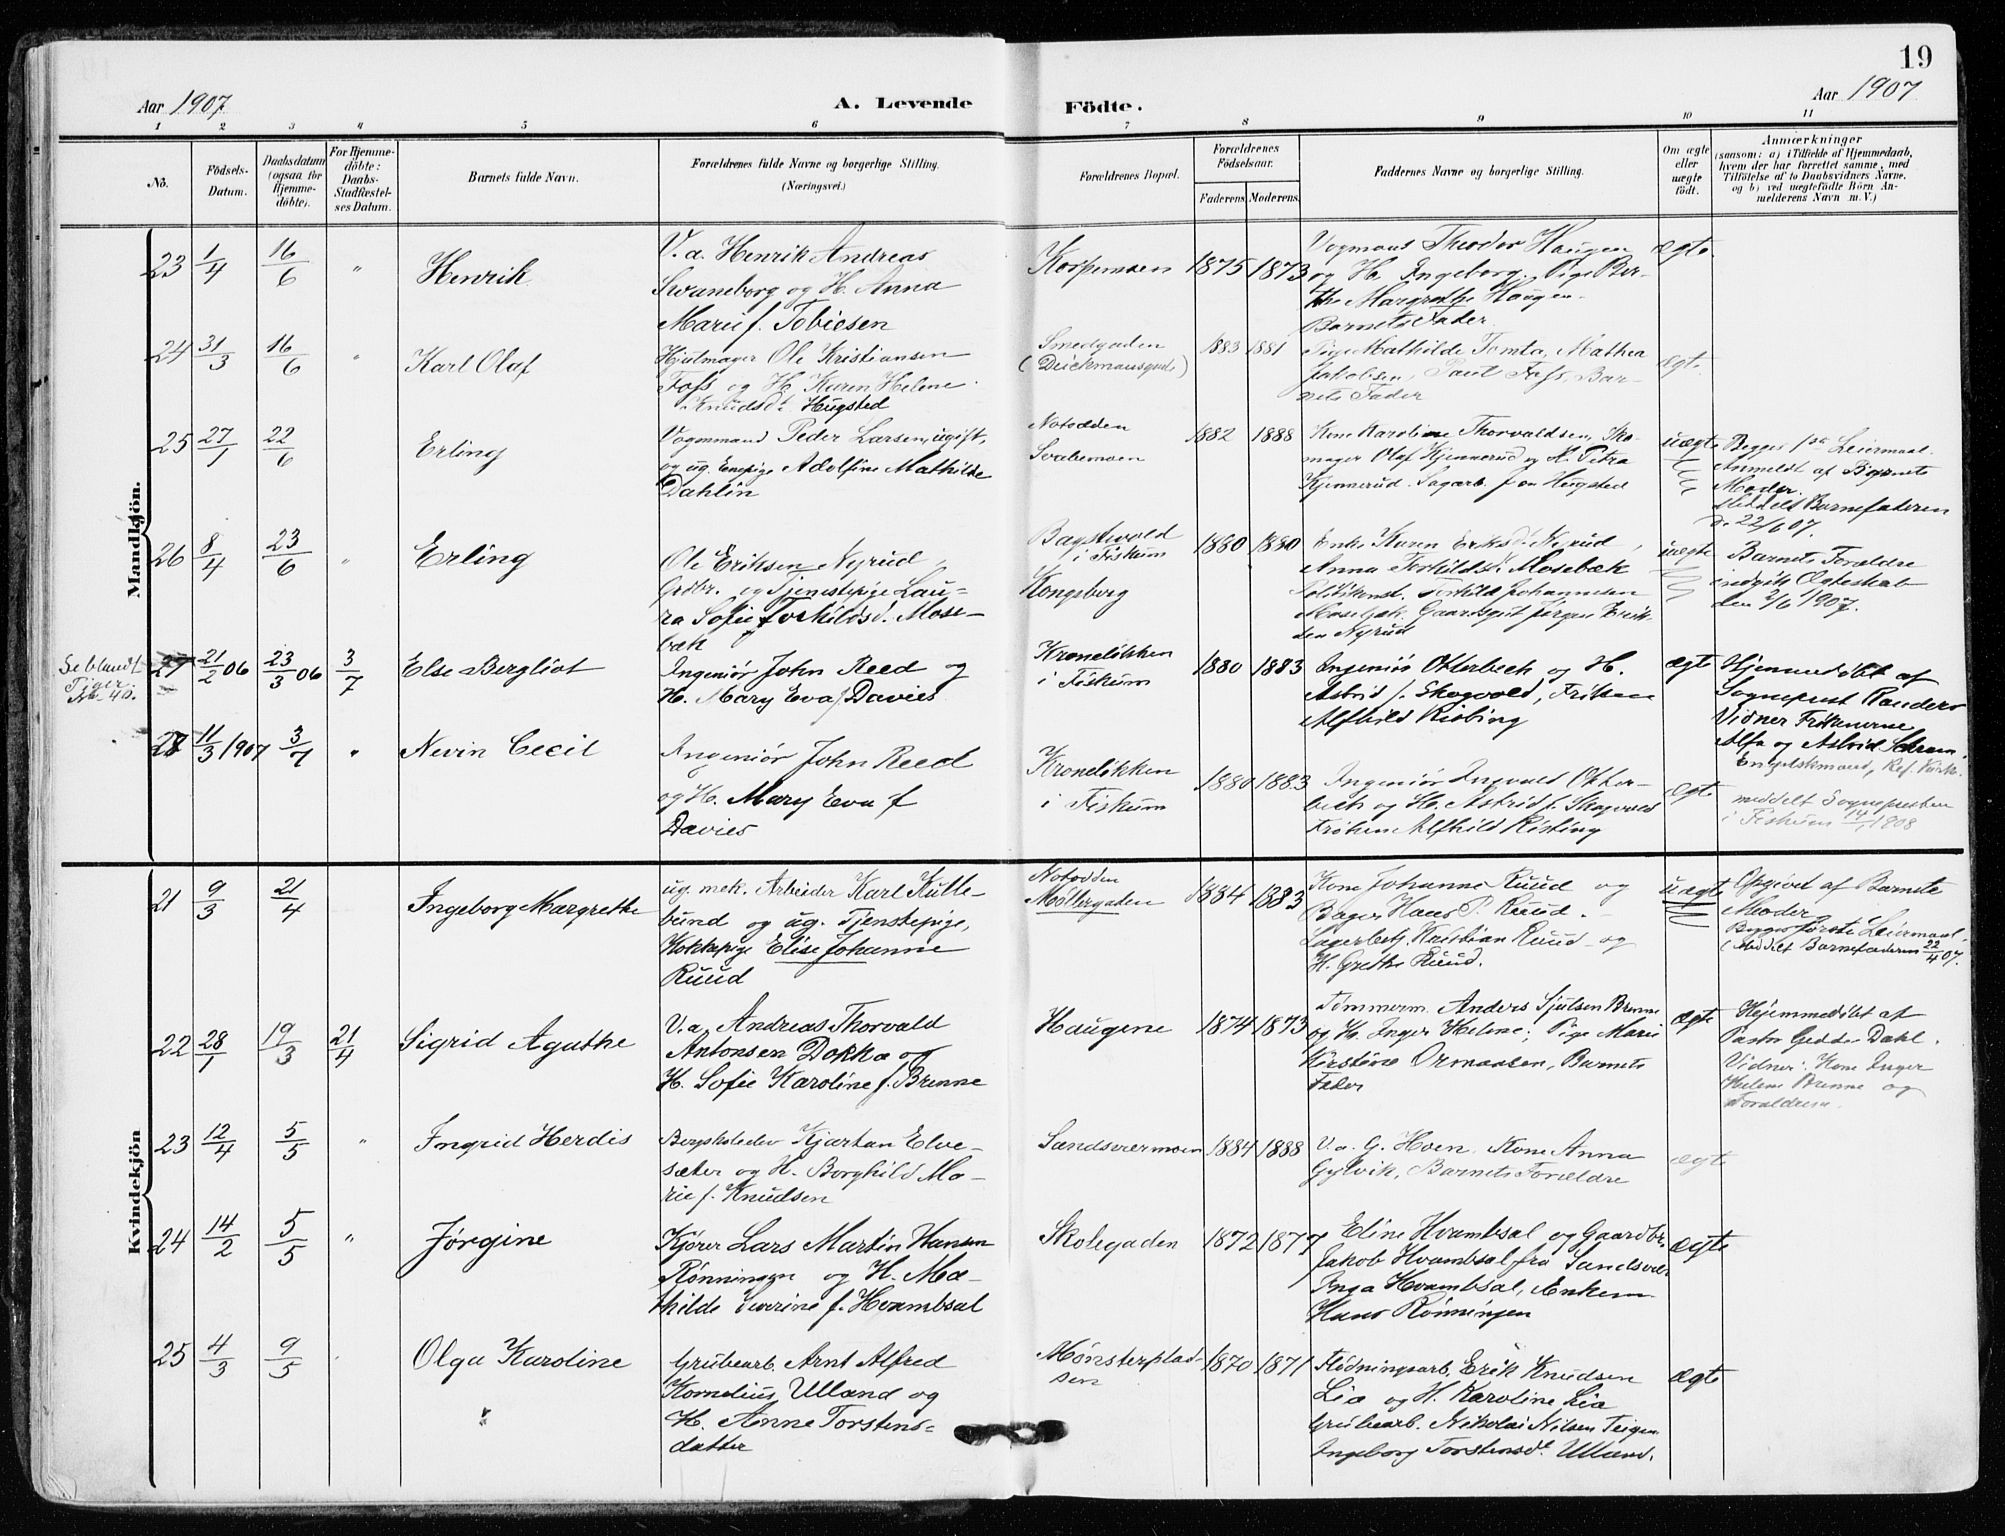 19
Aar 1907
A. Levende
Födte.
Aar 1907
1 2 3 4 5 6 7 8 9 10 11
No.
Födsels-
Datum.
Daabsdatum
(ogsaa for
Hjemme-
döbte).
For Hjemme-
döbte:
Daabs-
Stadfæstel-
ses Datum.
Barnets fulde Navn.
Forældrenes fulde Navne og borgerlige Stilling.
(Næringsvei.)
Forældrenes Bopæl.
Forældrenes
Födselsaar.
Faderens Moderens
Faddernes Navne og borgerlige Stilling.
Om ægte
eller
uægte
født.
Anmærkninger
(saasom: a) i Tilfælde af Hjemmedaab,
hvem der har forrettet samme, med
Tilföielse af to Daabsvidners Navne,
og b) ved uægtefödte Börn An-
melderens Navn m. V.)
Mandkjön.
23 1/4 16/6 " Henrik
V.a. Henrik Andreas
Svaneborg og H. Anna
Marie f. Tobiesen
Korpemoen 1875 1873
Vogmans Theodor Haugen
og H. Ingeborg. Pige Ber-
the Margrethe Haugen.
Barnets Fader.
ægte
24 31/3 16/6 " Karl Olaf
Hjulmager Ole Kristiansen
Foss og H. Karen Helene
Knudsd. Hugsted
Smedgaden
(Deichmansgade)
1883 1881
Pige Mathilde Tomta, Mathea
Jakobsen, Paul Foss, Bar-
nets Fader
ægte
25 27/1 22/6 Erling
Vognmand Peder Larsen, ugift,
og ug. Enepige Adolfine Mathilde
Dahlin
Notodden
1882 1888
Kone Karoline Thorvaldsen, Sko-
mager Olaf Kjennerud og H. Petra
Kjennerud. Sagarb. Hugsted
uægte
Begges 1ste Leiermaal.
Anmeldt af Barnets
Moder.
Meddelt Barnefaderen
d. 22/6 07.
26 8/4 23/6 " Erling
Ole Eriksen Nyrud,
Grdbr. og Tjenestepige Lau-
ra Sofie Torkildsd. Mose-
bæk
i Fiskum
Kongsberg
1880 1880
Enke Karen Eriksd. Nyrud,
Anna Torkildsd. Mosebæk
Politikonst. Torkild Johannesen
Mosebæk, Gaardsgut Jørgen Erik-
sen Nyrud
uægte
Barnets Forældre
indgik Ægteskab
den 2/6 1907.
27 21/2 06 23/3 06 3/7 Else Bergliot
Ingeniør John Reed og
H. Mary Eva f. Davies
Kroneløkken
i Fiskum
1880 1883
Ingeniør Otterbech og H.
Astrid f. Skogvold, Frøken
Alfhild Risting
ægte
Hjemmedøbt af
Sogneprest Randers
Vidner Frøknerne
Alfa og Astrid Schram
28 11/3 1907 3/7 " Nevin Cecil
Ingeniør John Reed
og H. Mary Eva f
Davies
Kroneløkken
i Fiskum
1880 1883
Ingeniør Ingvald Otter-
bech og H. Astrid f. Skogvold
Frøken Alfhild Risting
ægte
meddelt Sognepresten
i Fiskum 14/1 1908
Kvindekjön
21 9/3 21/4 Ingeborg Margrethe
ug. mek. Arbeider Karl Kulle-
bund og ug. Tjenstepige,
Kokkepige Elise Johanne
Ruud
Notodden
Møllergaden
1884 1883
Kone Johanne Ruud og
Bager Hans P. Ruud.
Lagerbetj. Kristian Ruud og
H. Grethe Ruud.
uægte
Opgivet af Barnets
Moder.
Begges første Leiermaal.
(Meddelt Barnefaderen 22/4 07.
22 28/1 19/3 21/4 Sigrid Agathe
V.a. Andreas Thorvald
Antonsen Dokka og
H. Sofie Karoline f. Brenne
Haugene 1874 1873
Tømmerm. Anders Sjulsen Brenne
og H. Inger Helene; Pige Marie
Kirstine Ormaasen, Barnets
Fader
ægte
Hejemmedøbt af
Pastor Gedde Dahl.
Vidner: Kone Inger
Helene Brenne og
Forældrene.
23 12/4 5/5 " Ingrid Herdis
Bergksleder Kjartan Elve-
sæter og H. Borghild Ma-
rie f. Knudsen
Sandsværmoen 1884 1888
V.a. G. Hoen, Kone Anna
Gylvik, Barnets Forældre
ægte
24 14/2 5/5 " Jørgine
Kjører Lars Martin Hansen
Rønningen og H. Ma-
thilde Severine f. Hvambsal
Skolegaden 1872 1877
Eline Hvambsal og Gaardbr.
Jakob Hvambsal fra Sandsvær
Inga Hvambsal, Enkem.
Hans Rønningen
ægte
25 4/3 9/5 Olga Karoline
Grubearb. Arnt Alfred
Kornelius Ulland og
H. Anne Torstens-
datter
Mønsterplad-
sen
1870 1871
Flødningsarb. Erik Knudsen
Lia og H. Karoline Lia
Grubearb. Nikolai Nilsen Teigen
Ingeborg Torstensdt. Ulland.
ægte